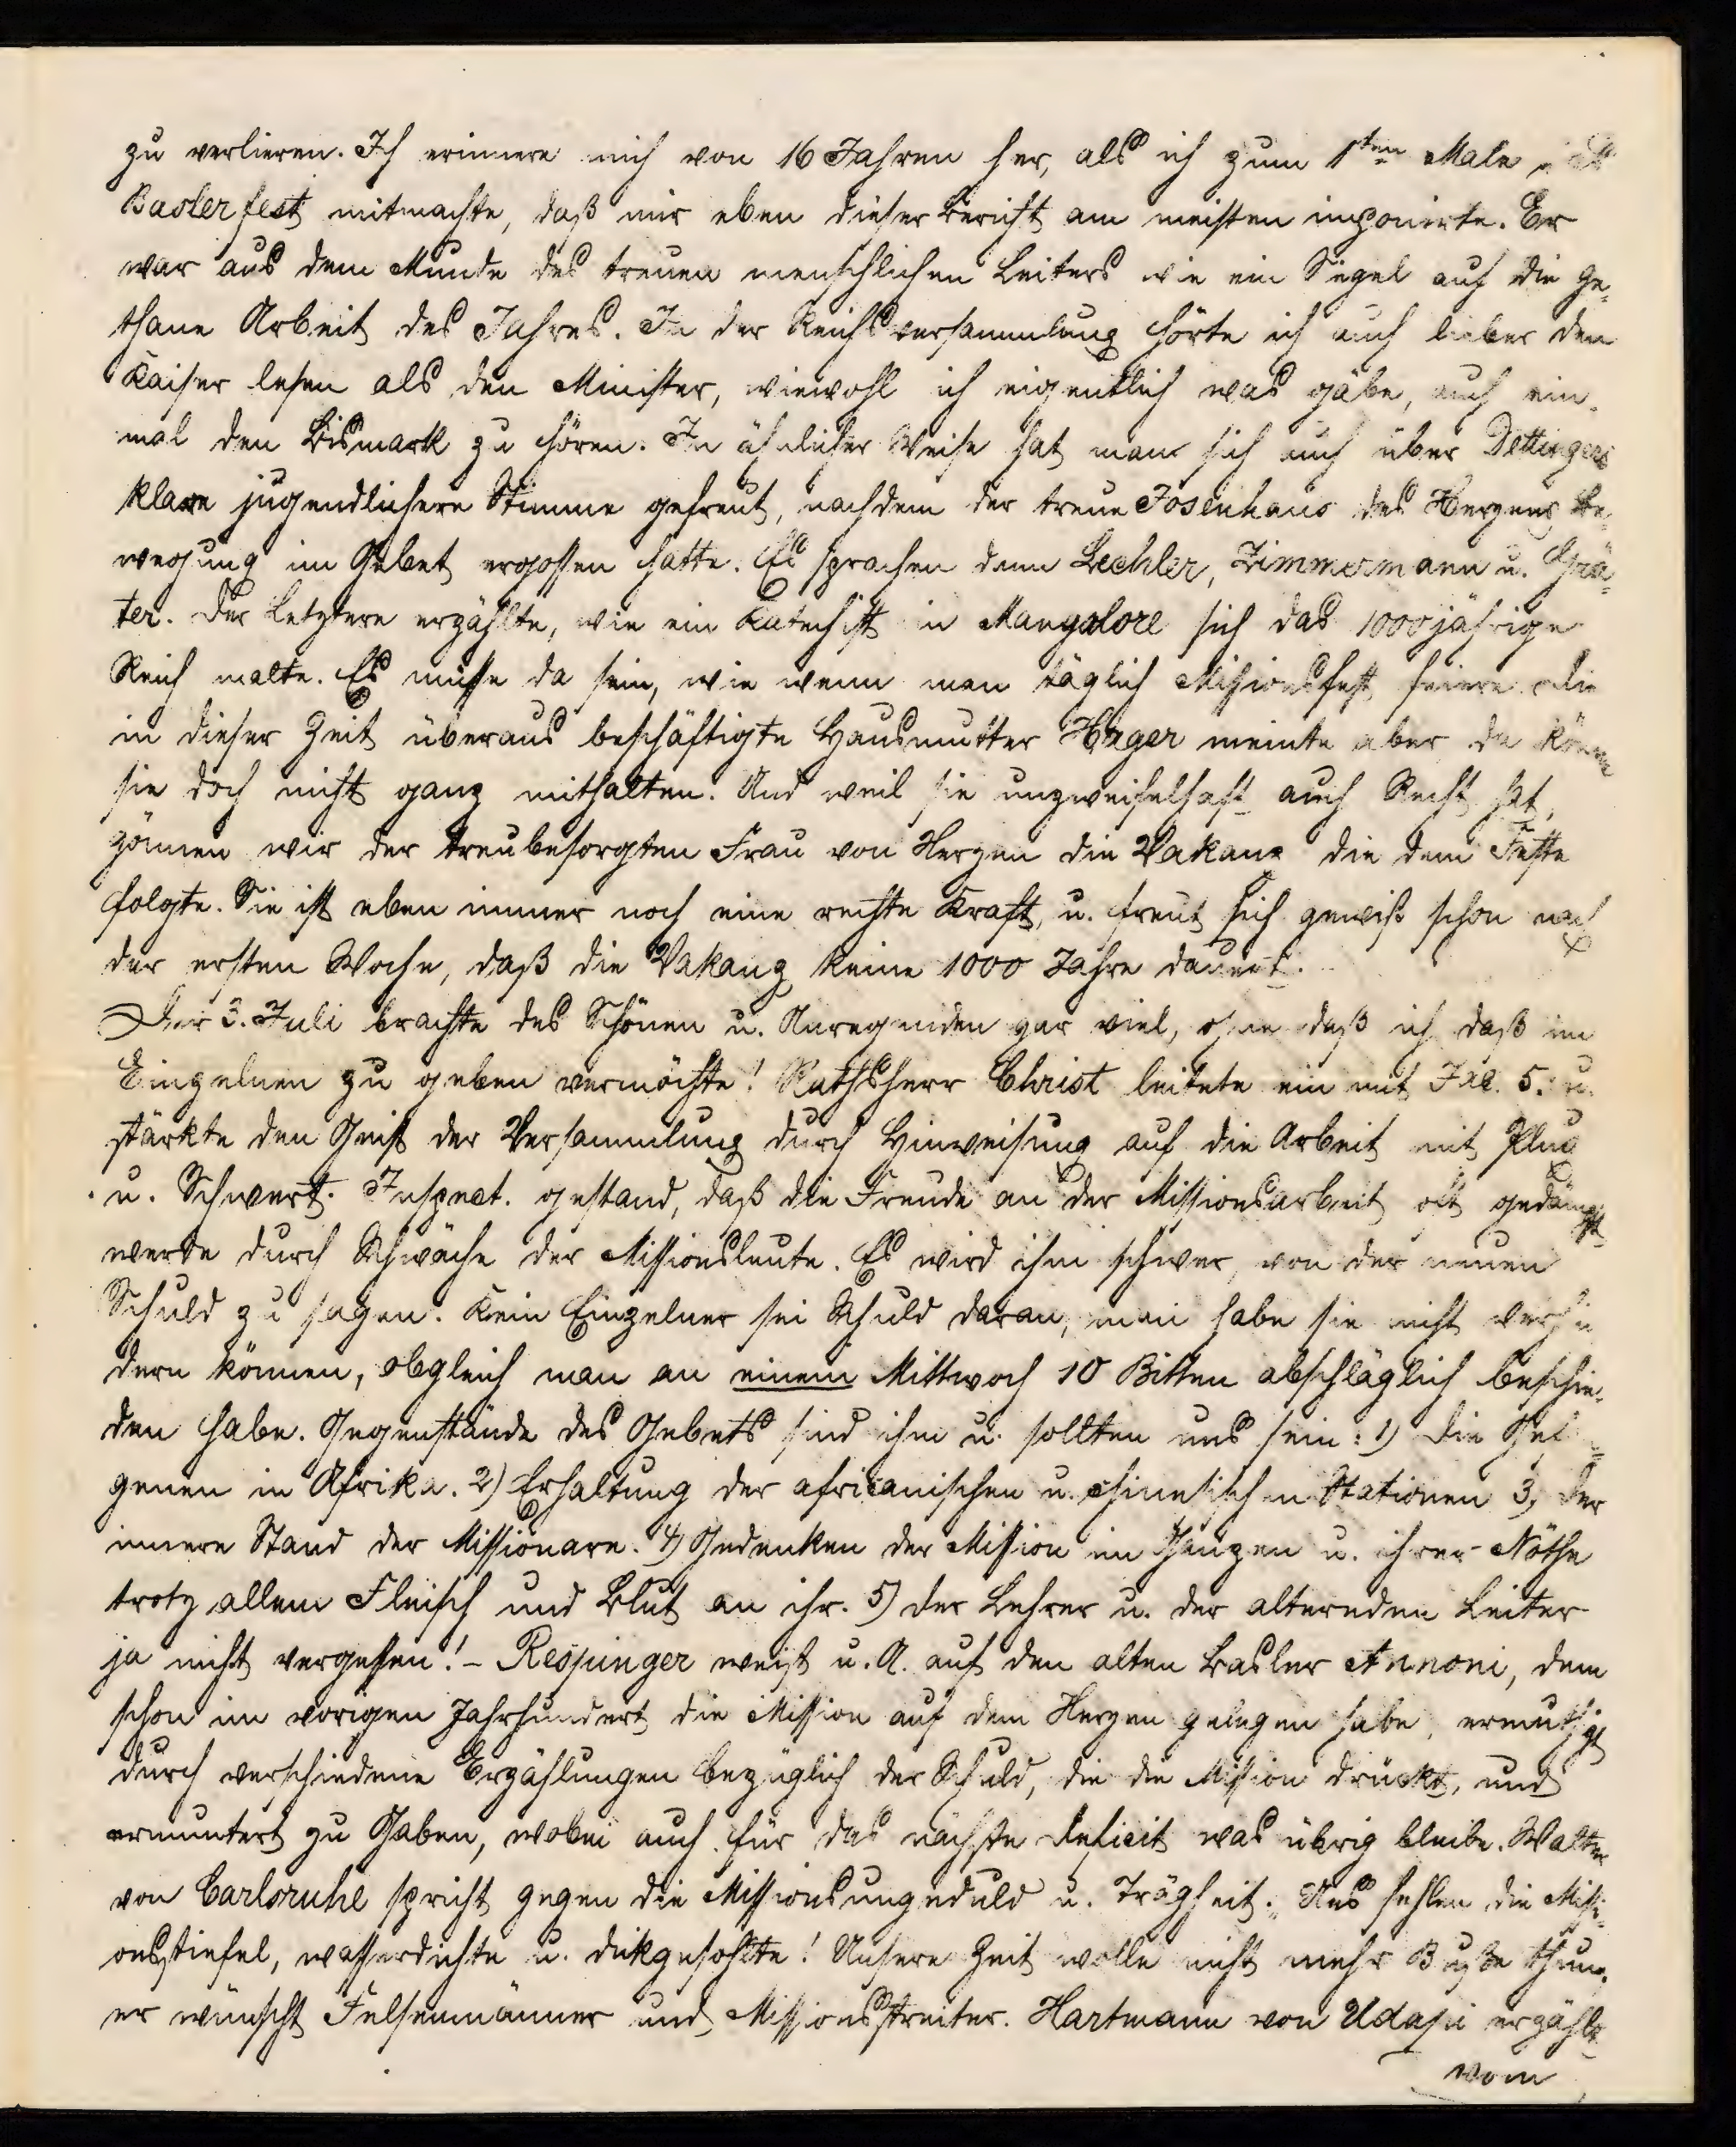 zu verlieren. Ich erinnere mich von 16 Jahren her, als ich zum 1ten Male
Baslerfest mitmachte, daß mir eben dieser Bericht am meisten imponirte. Er
war aus dem Munde des treuen menschlichen Leiters wie ein Siegel auf die ge-
thane Arbeit des Jahres. In der Reichsversammlung hörte ich auch lieber den
Kaiser lesen als den Minister, wiewohl ich eigentlich was gäbe, auch ein-
mal den Bismark zu hören. In ähnlicher Weise hat man sich auch über Dettingers
klare jugendlichere Stimme gefreut, nachdem der treue Josenhans des Herzens Be-
wegung im Gebet ergossen hatte. Es sprachen dann Lechler, Zimmermann u. Grä-
ter. Der Letztere erzählte, wie ein Katechist in Mangalore sich das 1000jährige
Reich malte. Es müsse da sein, wie wenn man täglich Missionsfest feiere. Die
in dieser Zeit überaus beschäftigte Hausmutter Hager meinte aber da könne
sie doch nicht ganz mithalten. Und weil sie unzweifelhaft auch Recht hat,
gönnen wir der treubesorgten Frau von Herzen die Vakanz die dem Feste
folgte. Sie ist eben immer noch eine rechte Kraft, u. freut sich gewiß schon nach
der ersten Woche, daß die Vakanz keine 1000 Jahre dauert.
Der 3. Juli brachte des Schönen u. Anregenden gar viel, ohne daß ich daß im
Einzelnen zu geben vermöchte! Rathsherr Christ leitete ein mit 5. u.
stärkte den Geist der Versammlung durch Hinweisung auf die Arbeit mit Pflug
u. Schwert. Inspect. gestand, daß die Freude an der Missionsarbeit oft gedämpft
werde durch Schwäche der Missionsleute. Es wird ihm schwer, von der neuen
Schuld zu sagen. Kein Einzelner sei Schuld daran, man habe sie nicht verhin
dern können, obgleich man an einem Mittwoch 10 Bitten abschläglich beschie-
den habe. Gegenstände des Gebets sind ihm u. sollten uns sein: 1) Die Gefan-
genen in Afrika. 2) Erhaltung der africanischen u. chinesischen Stationen 3, der
innere Stand der Missionare. 4) Gedenken der Mission im Ganzen u. ihrer Nöthe
trotz allem Fleisch und Blut an ihr. 5) der Lehrer u. der alternden Leiter
ja nicht vergessen! – Respinger weist u. A. auf den alten Basler Annoni, dem
schon im vorigen Jahrhundert die Mission auf dem Herzen gelegen habe, ermuthigt
durch verschiedene Erzählungen bezüglich der Schuld, die die Mission drückt, und
ermuntert zu Gaben, wobei auch für das nächste Deficit was übrig bleibe. Walter
von Carlsruhe spricht gegen die Missionsungeduld u. Trägheit: „Uns fehlen die Missi-
onsstiefel, wasserdichte u. dickgesohlte! Unsere Zeit wolle nicht mehr Buße thun.
er wünscht Felsenmänner und Missionsstreiter. Hartmann von Udapi erzählt
vom